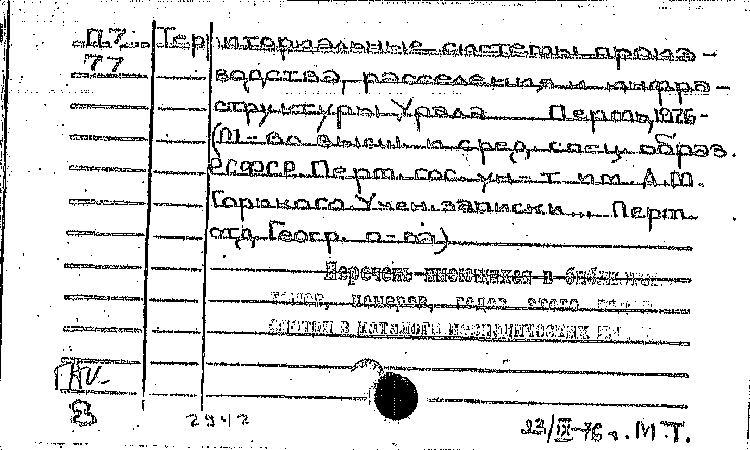 П.7 Территориальные системы произ-
77 водства, расселения и инфра-
структуры Урала. Пермь, 1976-
(М-во высш. и сред. спец. образ.
РСФСР. Перм. гос. ун-т им. А.М.
Горького. Учен. записки... Перм.
отд. Геогр. о-ва)
Перечень имеющихся в библиотеке
томов, номеров, годов этого издания
смотри в каталоге периодических
2942
23/IX-76 г. М.Т.